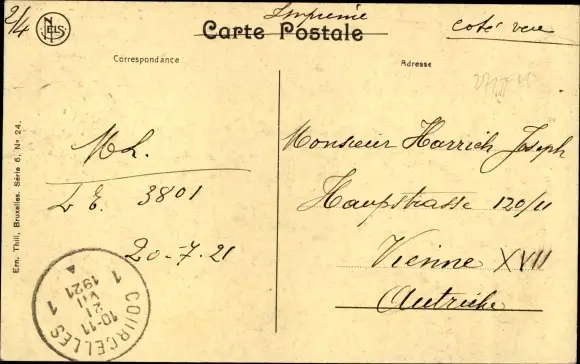 2/4
NELS
Imprimé
Carte Postale
coté vue
Correspondance
Adresse
Ern. Thill, Bruxelles. Série 6, No 24.
Monsieur Harrich Joseph
Haupstrasse 120/11
Vienne XVII
Autriche
L E. 3801
20-7-21
COURCELLES
1 1
10-11
21
VII
1921